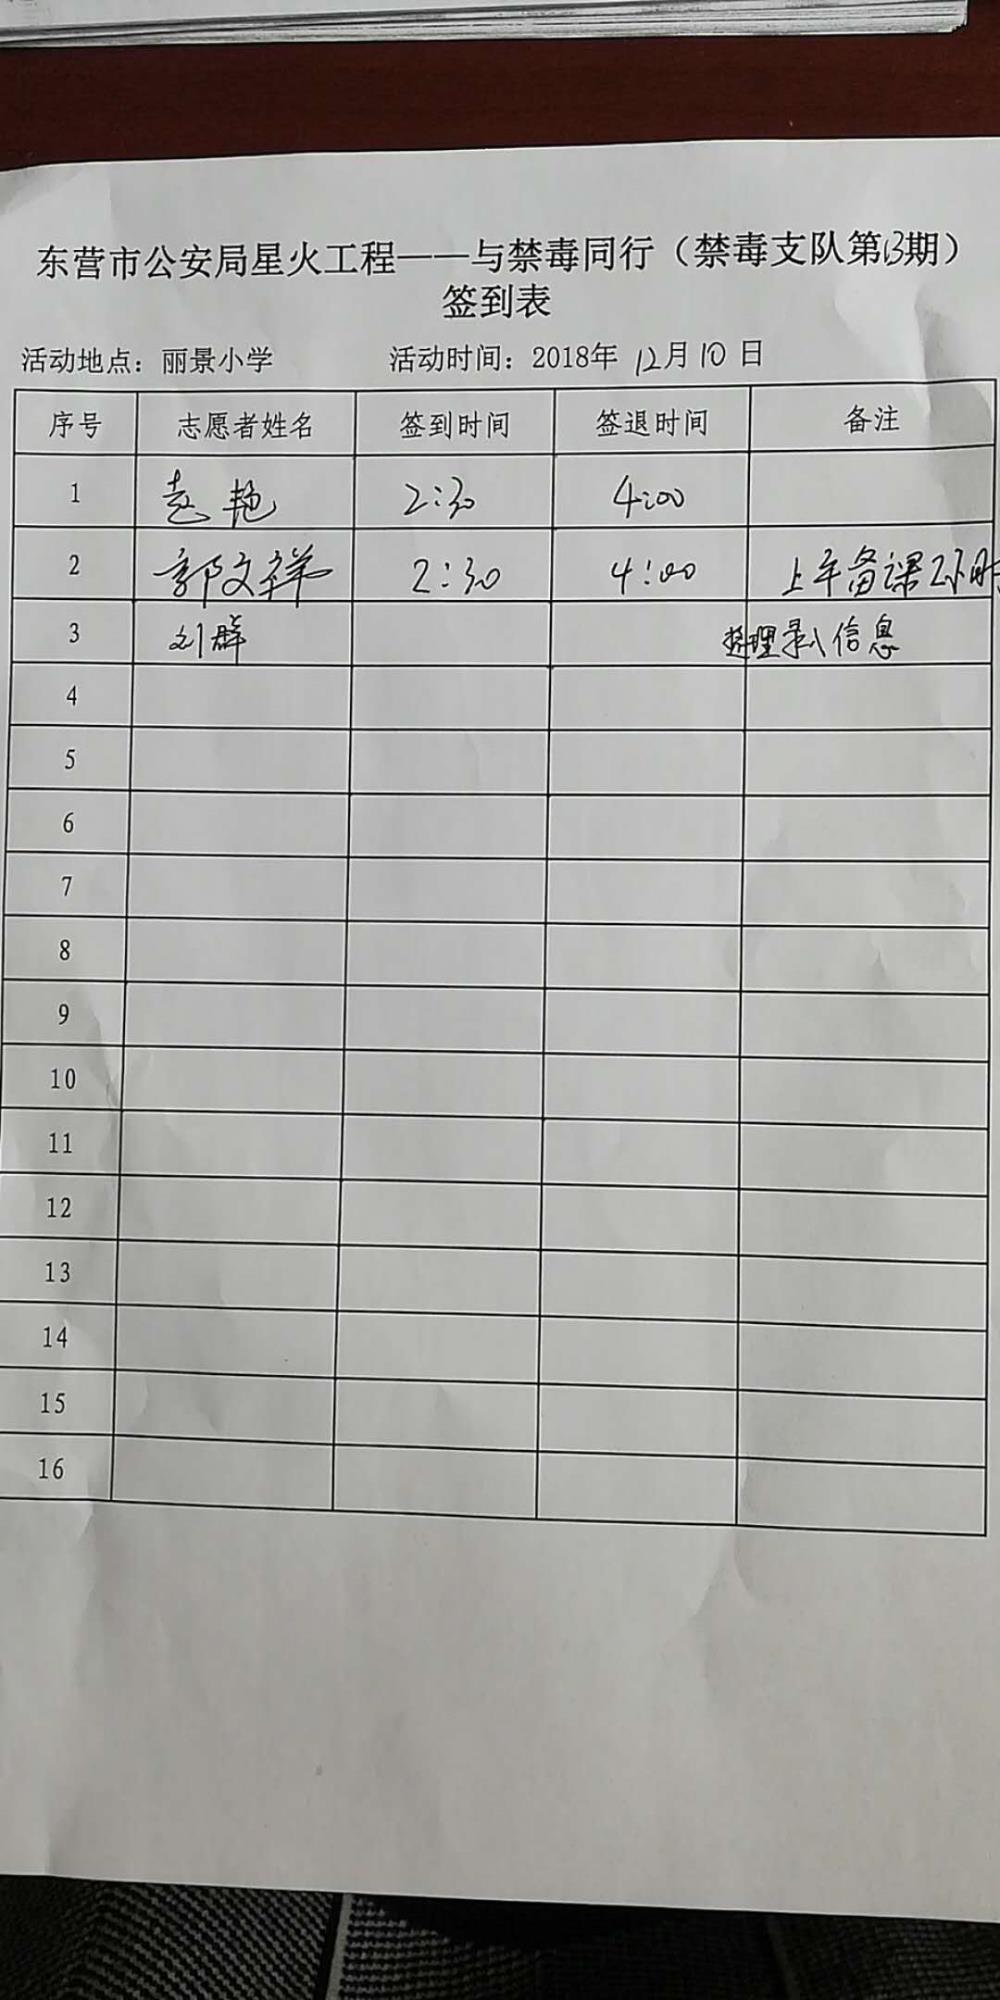 东营市公安局星火工程——与禁毒同行（禁毒支队第13期）
签到表
活动地点：丽景小学 活动时间：2018年 12月 10 日
序号 志愿者姓名 签到时间 签退时间 备注
1 赵艳 2:30 4:00
2 郭文祥 2:30 4:00 上午备课2小时
3 刘群 整理录入信息
4
5
6
7
8
9
10
11
12
13
14
15
16